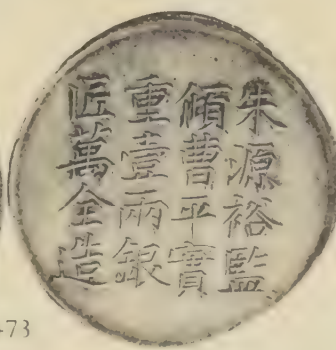 朱源裕監
傾曹平實
重壹兩銀
匠萬全造
-73